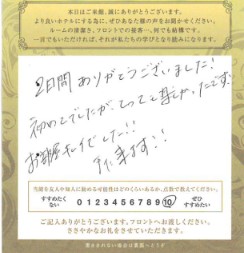 本日はご来館、誠にありがとうございます。
より良いホテルにする為に、ぜひあなた様の声をお聞かせください。
ルームの清潔さ、フロントでの接客…、何でも結構です。
一言でもいただければ、それが私たちの学びとなり励みになります。
2日間ありがとうございました!
初めてでしたが、とっても楽しかったです。
お部屋もキレイでした!!
また来ます!!
当館を友人や知人に勧める可能性はどのくらいあるか、点数で教えてください。
すすめたくない 0 1 2 3 4 5 6 7 8 9 10 ぜひすすめたい
ご記入ありがとうございます。フロントへお渡しください。
ささやかなお礼をさせていただきます。